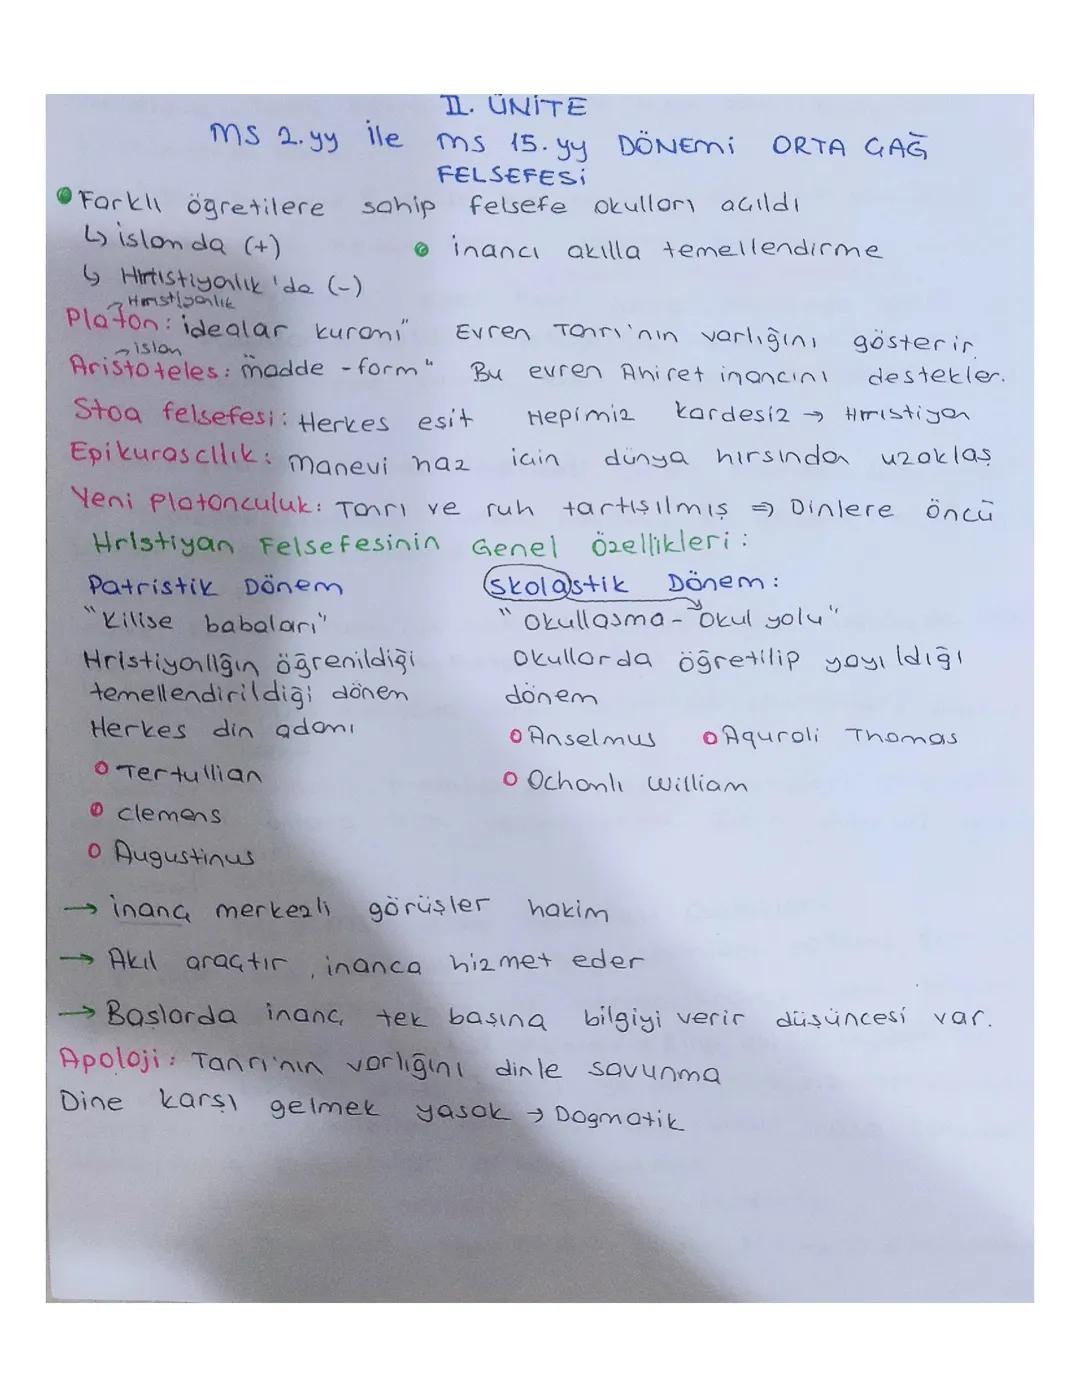 II. ÜNİTE
MS 2.yy ile MS 15.yy DÖNEMİ ORTA ÇAĞ
FELSEFESİ
Farklı öğretilere sahip felsefe okulları açıldı
↳ islamda (+)
inancı akılla temellendirme
↳ Hırıstiyanlık'da (-)
→ Hırıstiyanlık
Platon: idealar kuramı" Evren Tanrı'nın varlığını gösterir.
→ islam
Aristoteles: madde - form" Bu evren Ahiret inancını destekler.
Stoa felsefesi: Herkes eşit Hepimiz kardesiz → Hıristiyan
Epikurascılık: Manevi haz için dünya hırsından uzoklaş
Yeni Platonculuk: Tanrı ve ruh tartışılmış ⇒ Dinlere öncü
Hristiyan Felsefesinin Genel Özellikleri:
Patristik Dönem
Skolastik Dönem:
"Kilise babaları"
"Okullaşma - Okul yolu"
Hristiyanlığın öğrenildiği
temellendirildiği dönem
Okullarda öğretilip yayıldığı
dönem
Herkes din adamı
Anselmus Aquroli Thomas
Tertullian
Ochanlı William
clemens
Augustinus
→ inanç merkezli görüşler hakim
→ Akıl araçtır, inanca hizmet eder
→ Başlarda inanç tek başına bilgiyi verir düşüncesi var.
Apoloji: Tanrı'nın varlığını dinle savunma
Dine karşı gelmek yasak → Dogmatik